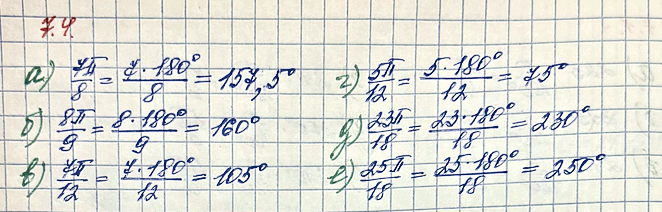 7.4.
а) 7π/8 = 7·180°/8 = 157,5°
б) 8π/9 = 8·180°/9 = 160°
в) 7π/12 = 7·180°/12 = 105°
г) 5π/12 = 5·180°/12 = 75°
д) 23π/18 = 23·180°/18 = 230°
е) 25π/18 = 25·180°/18 = 250°